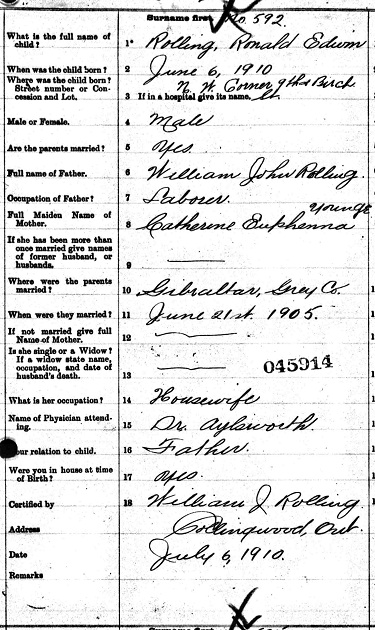 Surname first No. 592.
What is the full name of child? 1* Rolling, Ronald Edwin
When was the child born? 2 June 6, 1910
Where was the child born? Street number or Concession and Lot. N. W. Corner 9th & Birch
3 If in a hospital give its name. St.
Male or Female. 4 Male
Are the parents married? 5 Yes
Full name of Father. 6 William John Rolling
Occupation of Father? 7 Laborer.
Younge
Full Maiden Name of Mother. 8 Catherine Euphenna
If she has been more than once married give names of former husband, or husbands. 9
Where were the parents married? 10 Gibraltar, Grey Co.
When were they married? 11 June 21st. 1905.
If not married give full Name of Mother. 12
Is she single or a Widow? If a widow state name, occupation, and date of husband's death. 13
045914
What is her occupation? 14 Housewife
Name of Physician attending. 15 Dr. Aylsworth.
our relation to child. 16 Father.
Were you in house at time of Birth? 17 Yes.
Certified by 18 William J. Rolling
Address Collingwood, Ont.
Date July 6, 1910.
Remarks